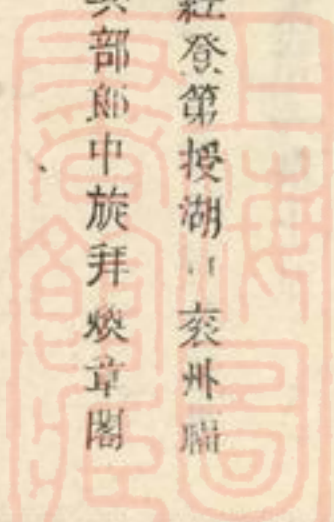 經登第授湖口袁州
部郎中旋拜煥章閣